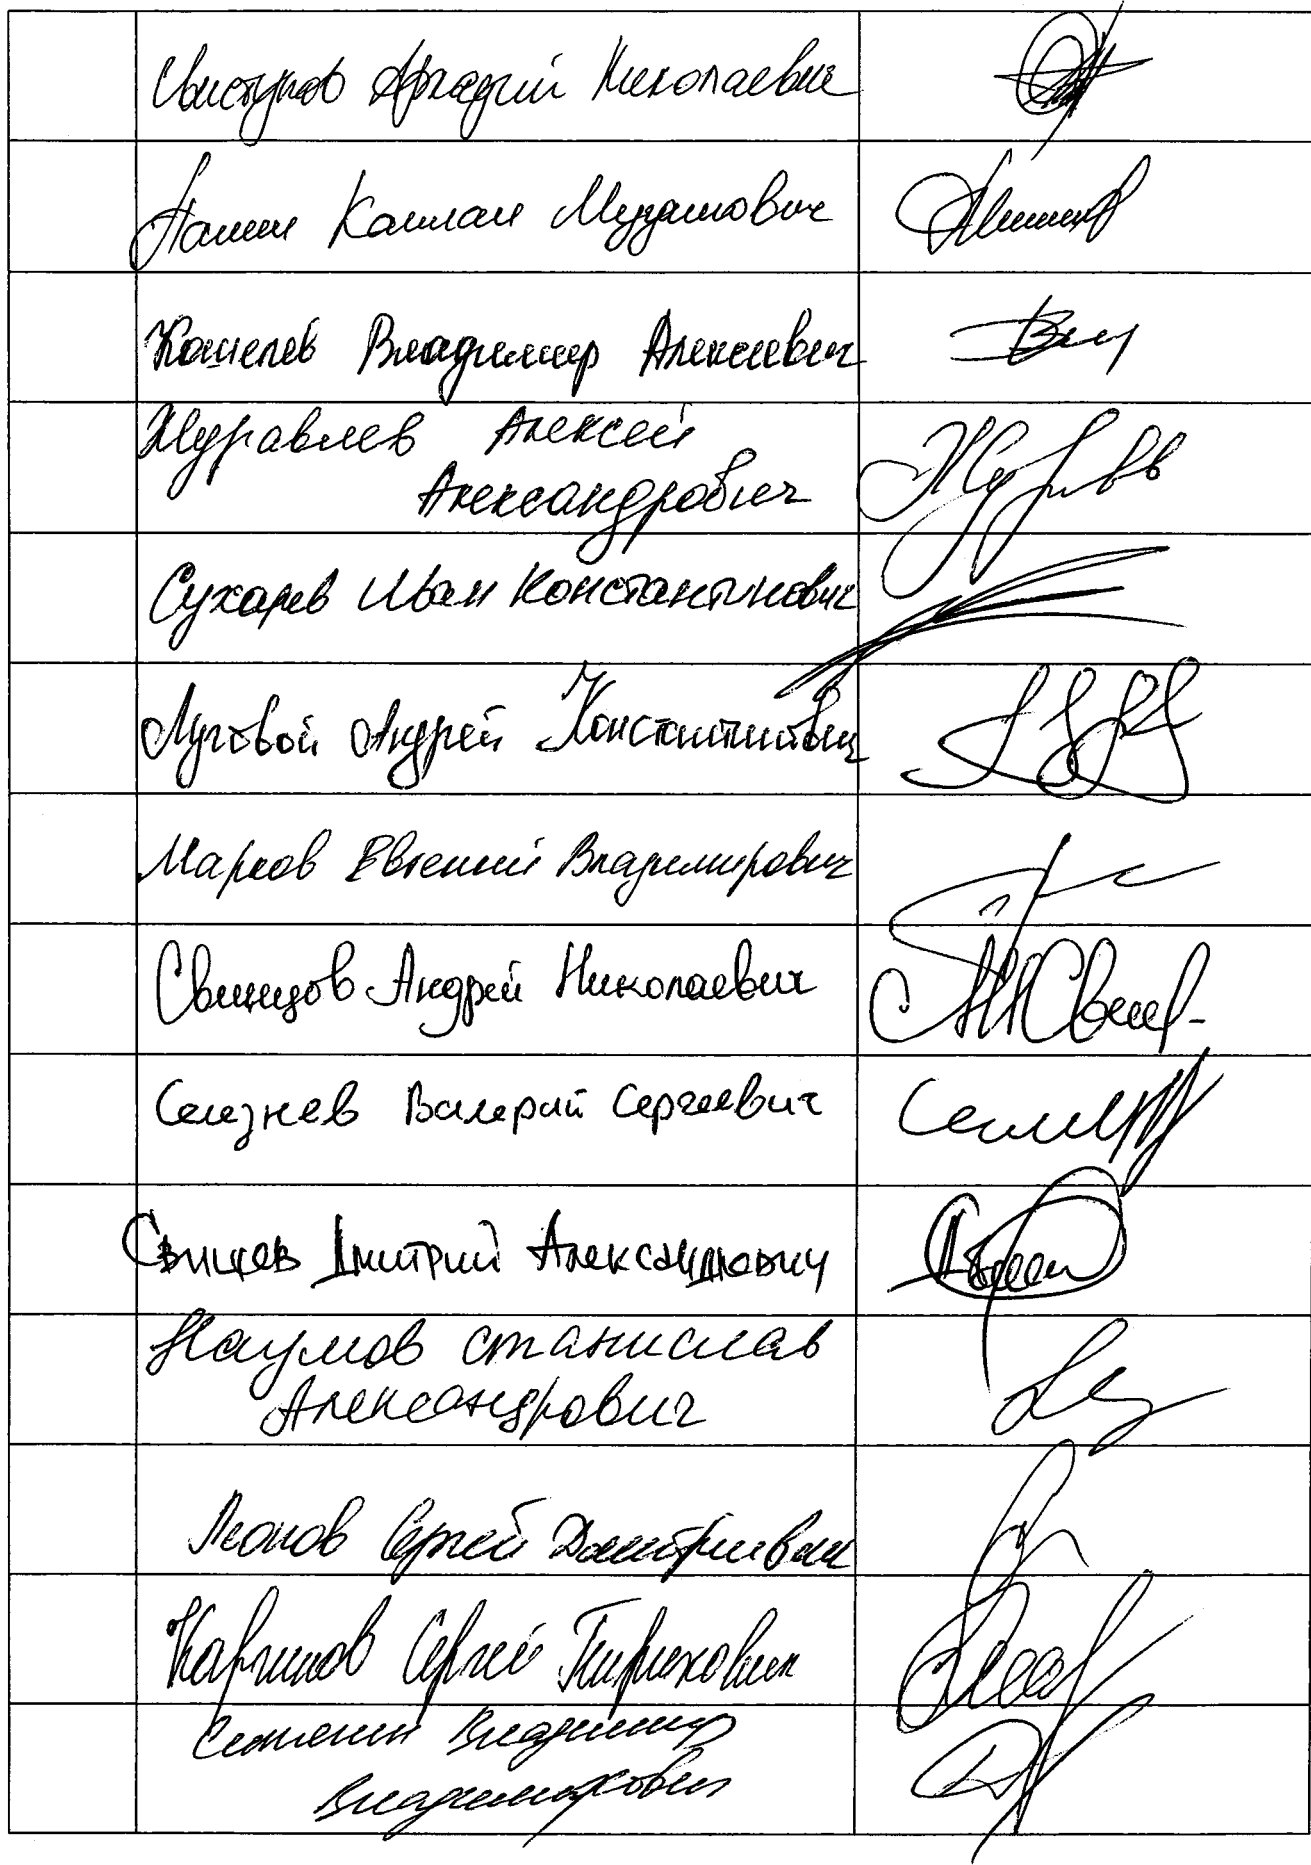 Свистунов Аркадий Николаевич
Панеш Каплан Мугдинович
Кошелев Владимир Алексеевич
Журавлев Алексей
Александрович
Сухарев Иван Константинович
Луговой Андрей Константинович
Марков Евгений Владимирович
Свинцов Андрей Николаевич
Селезнев Валерий Сергеевич
Свищев Дмитрий Александрович
Наумов Станислав
Александрович
Леонов Сергей Дмитриевич
Каргинов Сергей Генрихович
Сипягин Владимир
Владимирович